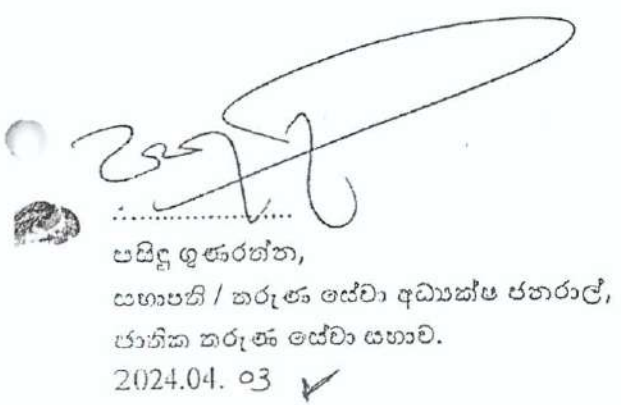 පසිඳු ගුණරත්න,
සභාපති / තරුණ සේවා අධ්‍යක්ෂ ජනරාල්,
ජාතික තරුණ සේවා සභාව.
2024.04. 03